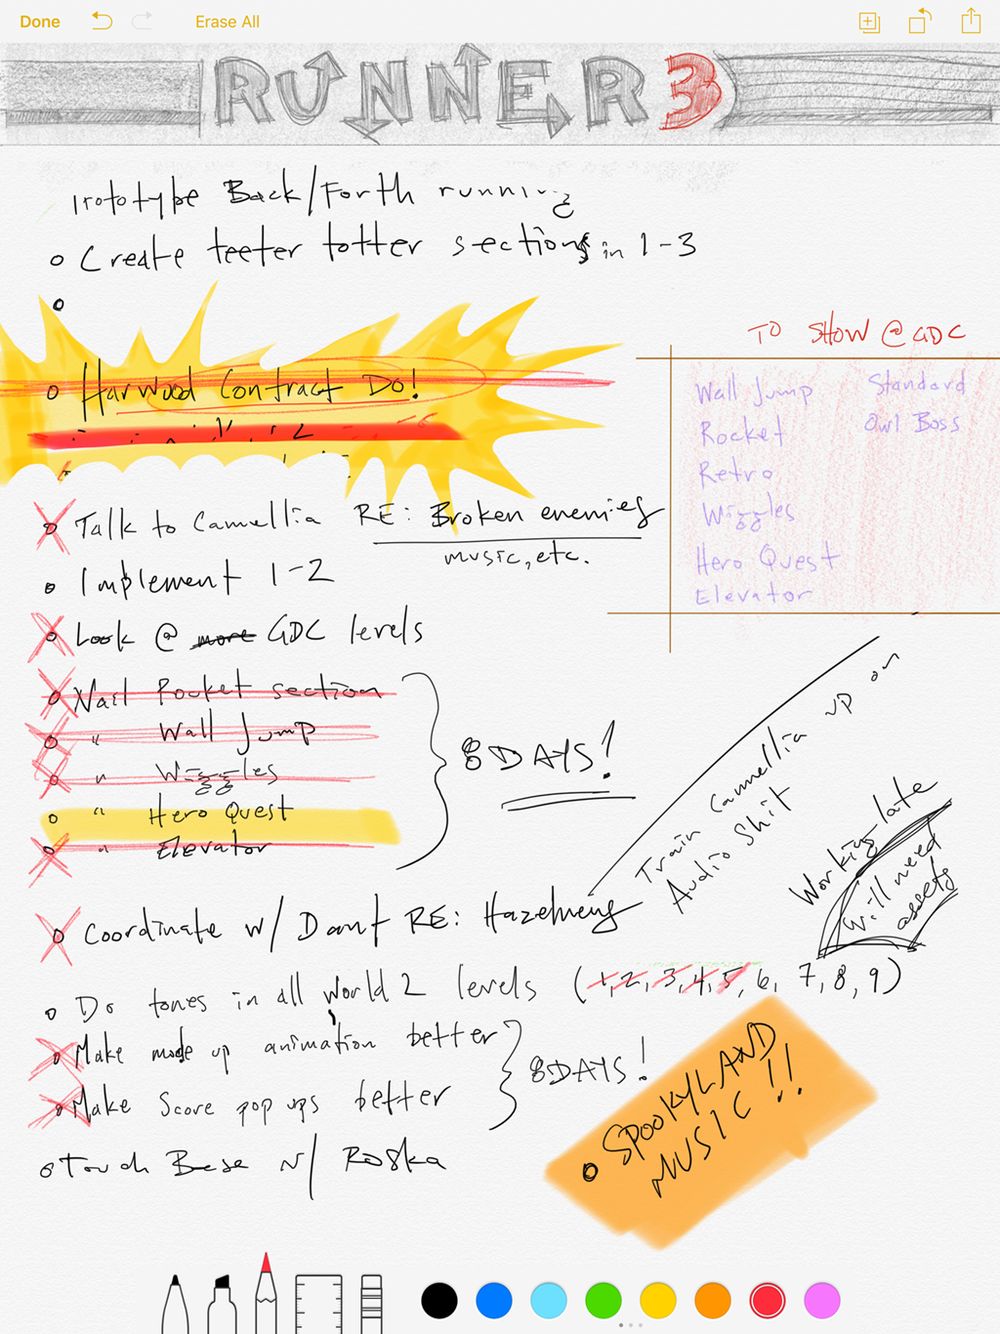 Done
Erase All
RUNNER3
Prototype Back/Forth running
Create teeter totter sections in 1-3
Harwood Contract Do!
TO SHOW @ GDC
Wall Jump Standard
Rocket Owl Boss
Retro
Wiggles
Hero Quest
Elevator
Talk to Camellia RE: Broken enemies
music, etc.
Implement 1-2
Look @ more GDC levels
Nail Rocket section
" Wall Jump
" Wiggles
" Hero Quest
" Elevator
8 DAYS!
Train Camellia up on
Audio Shit
Working late
will need
assets
Coordinate w/ Dant RE:
Do tones in all World 2 levels (1, 2, 3, 4, 5, 6, 7, 8, 9)
Make mode up animation better
Make Score pop ups better
8 DAYS!
Touch Base w/ Roska
SPOOKYLAND
MUSIC!!